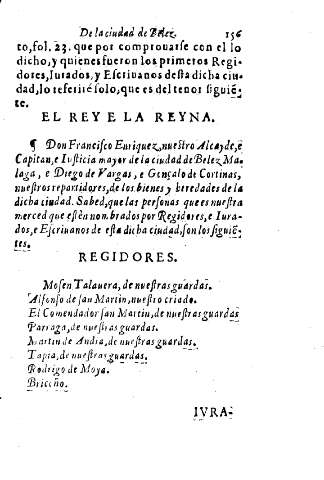 De la ciudad de Belez. 156
to, fol. 23. que por comprouarse con el lo
dicho, y quienes fueron los primeros Regi-
dores, Iurados, y Escriuanos desta dicha ciu-
dad, lo referirè solo, que es del tenor siguiē-
te.
EL REY E LA REYNA.
¶ Don Francisco Enriquez, nuestro Alcayde, è
Capitan, e Iusticia mayor de la ciudad de Belez Ma
laga, e Diego de Vargas, e Gonçalo de Cortinas,
nuestros repartidores, de los bienes y heredades de la
dicha ciudad. Sabed, que las personas que es nuestra
merced que estèn nombrados por Regidores, e Iura-
dos, e Escriuanos de esta dicha ciudad, son los siguiē-
tes.
REGIDORES.
Mosen Talauera, de nuestras guardas.
Alfonso de san Martin, nuestro criado.
El Comendador san Martin, de nuestras guardas
Parraga, de nuestras guardas.
Martin de Andia, de nuestras guardas.
Tapia, de nuestras guardas.
Rodrigo de Moya.
Briceño.
IVRA-